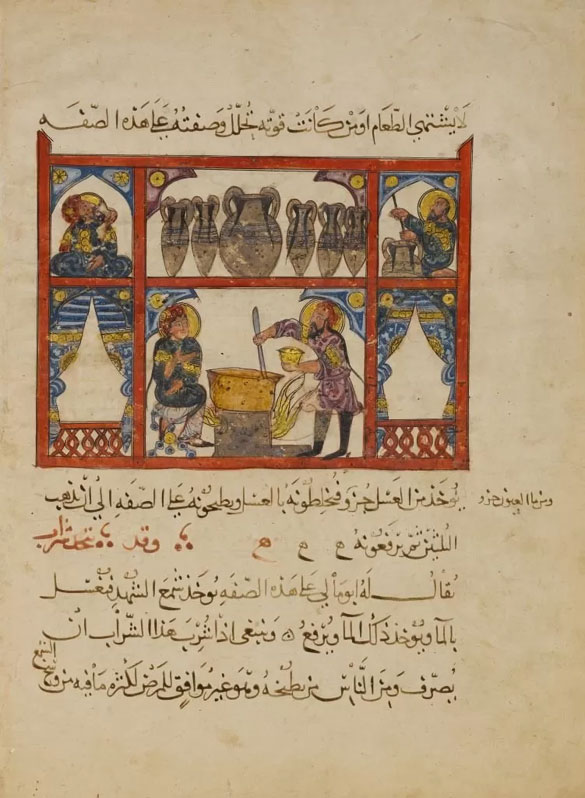 لا يشتهي الطعام او من كانت قوته تحلل وصفته على هذه الصفه
يوخذ من العسل جزو فيخلطونه بالعسل ويطبخونه على الصفه الى ان يذهب
ومن ماء العيون جزو
ثم يرفعونه وقد يتخذ شراب
يقال له ابومالي على هذه الصفه يوخذ شمع الشهد فيغسل
بالماء ويوخذ ذلك الماء ويرفع وينبغي اذا شرب هذا الشراب ان
يصرف ومن الناس من يطبخه وهو غير موافق للمرضى لكثره ما فيه من وسخ
الشمع